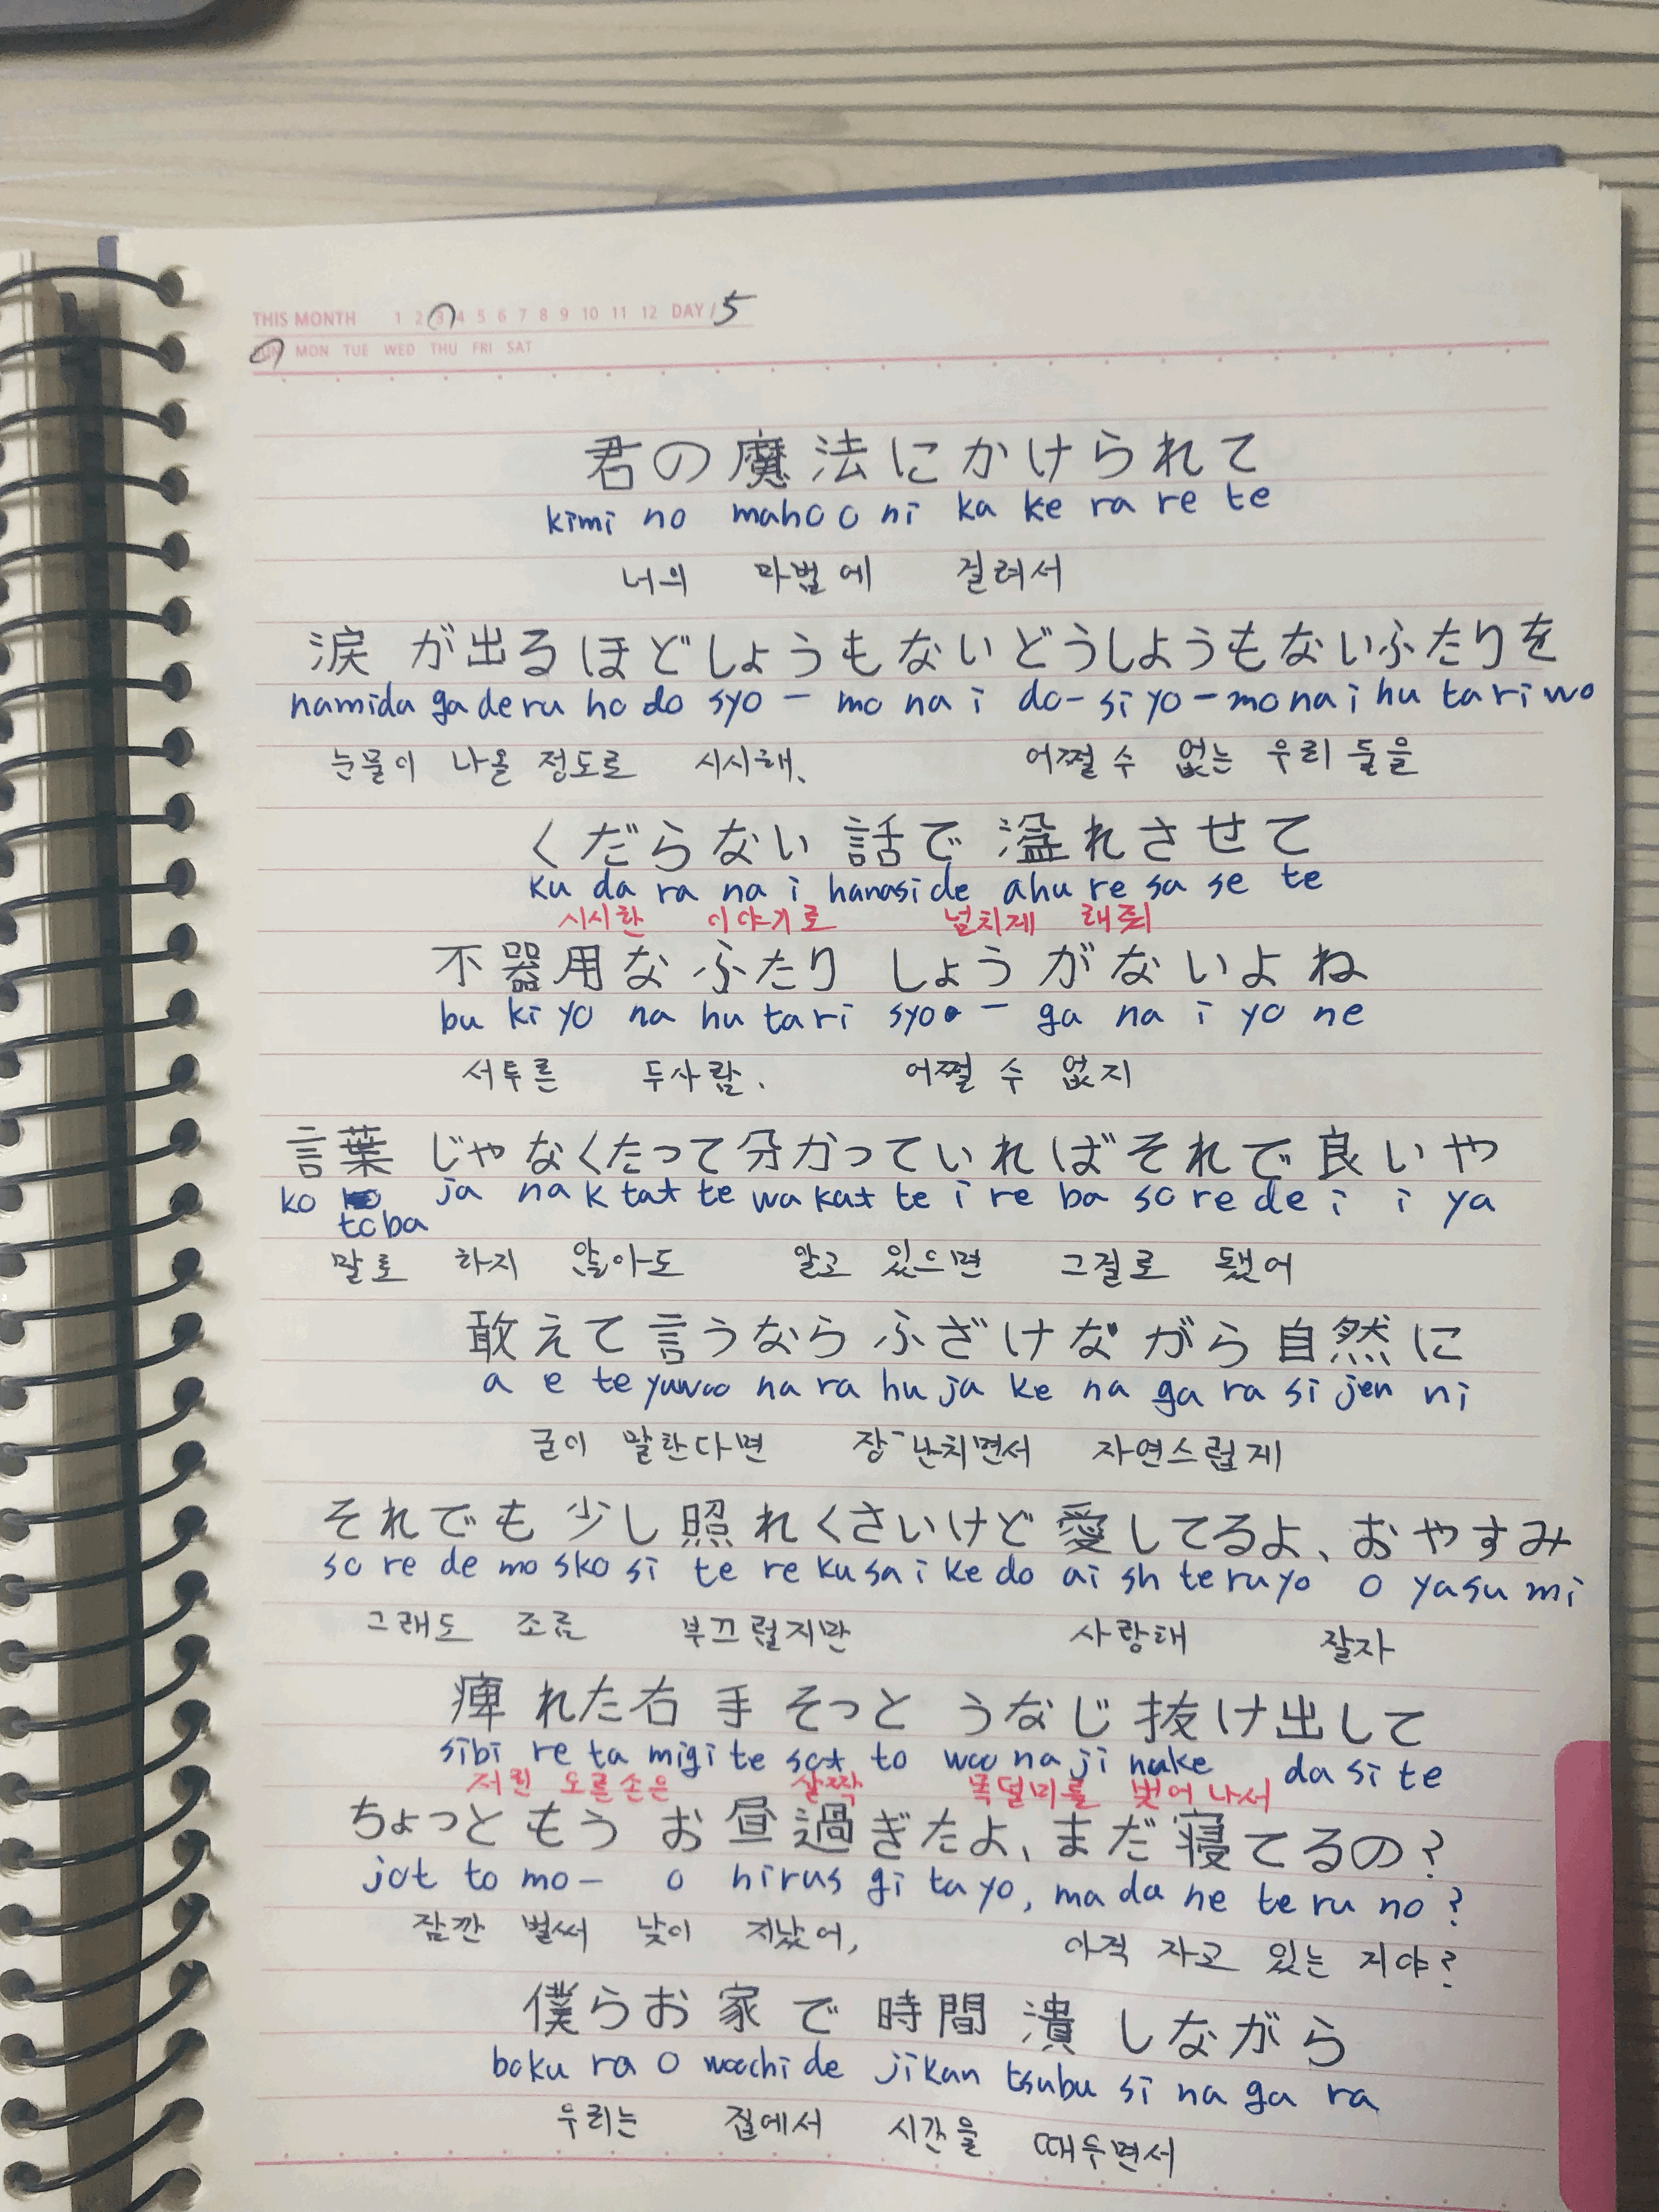 THIS MONTH 1 2 3 4 5 6 7 8 9 10 11 12 DAY / 5
SUN MON TUE WED THU FRI SAT
君の魔法にかけられて
kimi no mahoo ni ka ke ra re te
너의 마법에 걸려서
涙が出るほどしょうもないどうしようもないふたりを
namida ga de ru ho do syo - mo na i do - si yo - mo na i hu ta ri wo
눈물이 나올 정도로 시시해、 어쩔 수 없는 우리 둘을
くだらない話で溢れさせて
ku da ra na i hanasi de ahu re sa se te
시시한 이야기로 넘치게 해줘
不器用なふたり しょうがないよね
bu ki yo na hu ta ri syo - ga na i yo ne
서투른 두사람. 어쩔 수 없지
言葉じゃなくたって分かっていればそれで良いや
ko toba ja na k tat te wa kat te i re ba so re de i i ya
말로 하지 않아도 알고 있으면 그걸로 됐어
敢えて言うなら ふざけながら自然に
a e te yuwoo na ra hu ja ke na ga ra si jen ni
굳이 말한다면 장난치면서 자연스럽게
それでも少し照れくさいけど愛してるよ、おやすみ
so re de mo sko si te re ku sa i ke do ai sh te ru yo o yasu mi
그래도 조금 부끄럽지만 사랑해 잘자
痺れた右手そっと うなじ抜け出して
sibi re ta migi te sot to woo na ji nuke da si te
저린 오른손은 살짝 목덜미를 벗어나서
ちょっともうお昼過ぎたよ、まだ寝てるの?
jot to mo - o hirus gi ta yo, ma da ne te ru no?
잠깐 벌써 낮이 지났어, 아직 자고 있는 지야?
僕らお家で時間潰しながら
boku ra o woochi de jikan tsubu si na ga ra
우리는 집에서 시간을 때우면서